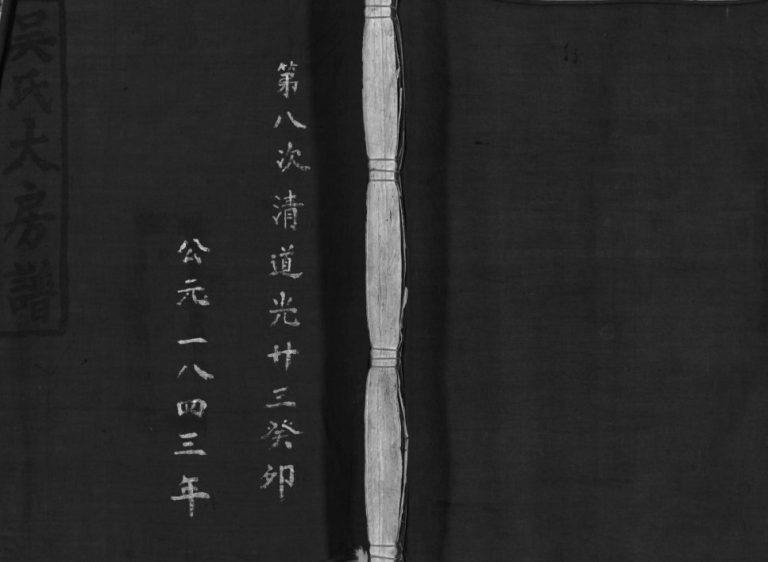 第八次清道光廿三癸卯
公元一八四三年
吴氏大房譜